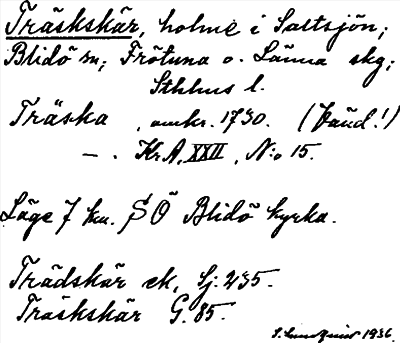 Träskskär, holme i Saltsjön;
Blidö sn; Frötuna o. Länna skg;
Sthlms l.
Träska , omkr. 1730. (Vänd!)
— . KrA, XXII, N:o 15.
Läge 7 km. SÖ Blidö kyrka.
Trädskär ek, Sj. 235.
Träskskär G. 85.
1936.